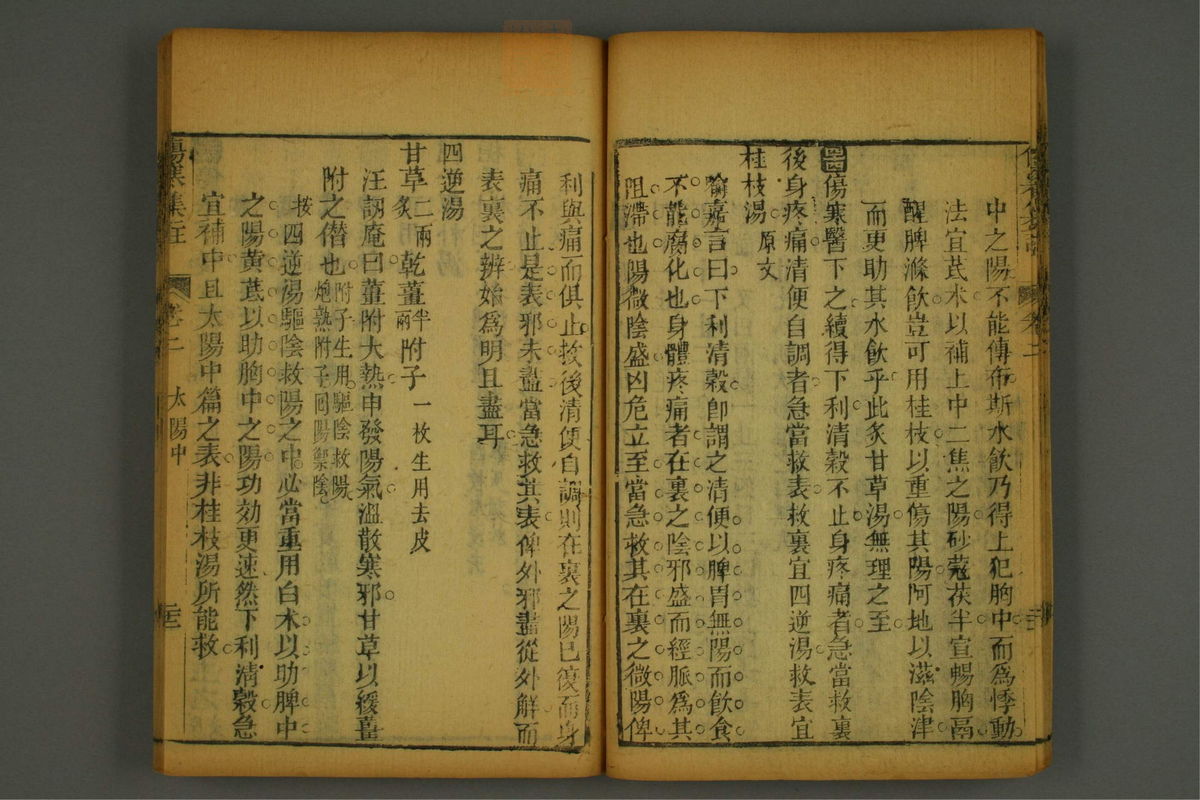 中之陽不能傳布斯水飲乃得上犯胸中而為悸動
法宜芪术以補上中二焦之陽砂蔻茯半宣暢胸膈
醒脾滌飲豈可用桂枝以重傷其陽阿地以滋陰津
而更助其水飲乎此炙甘草湯無理之至
傷寒醫下之續得下利清穀不止身疼痛者急當救裏
後身疼痛清便自調者急當救表救裏宜四逆湯救表宜
桂枝湯 原文
喻嘉言曰下利清穀卽謂之清便以脾胃無陽而飲食
不能腐化也身體疼痛者在裏之陰邪盛而經脈為其
阻滯也陽微陰盛凶危立至當急救其在裏之微陽俾
利與痛而俱止救後清便自調則在裏之陽已復而身
痛不止是表邪未盡當急救其表俾外邪盡從外解而
表裏之辨始為明且盡耳
四逆湯
甘草二兩炙乾薑半兩附子一枚生用去皮
汪訒庵曰薑附大熱申發陽氣溫散寒邪甘草以緩薑
附之僭也附子生用驅陰救陽炮熟附子回陽禦陰
按四逆湯驅陰救陽之中必當重用白术以助脾中
之陽黃芪以助胸中之陽功効更速然下利清穀急
宜補中且太陽中篇之表非桂枝湯所能救
傷寒集註 卷二 太陽中